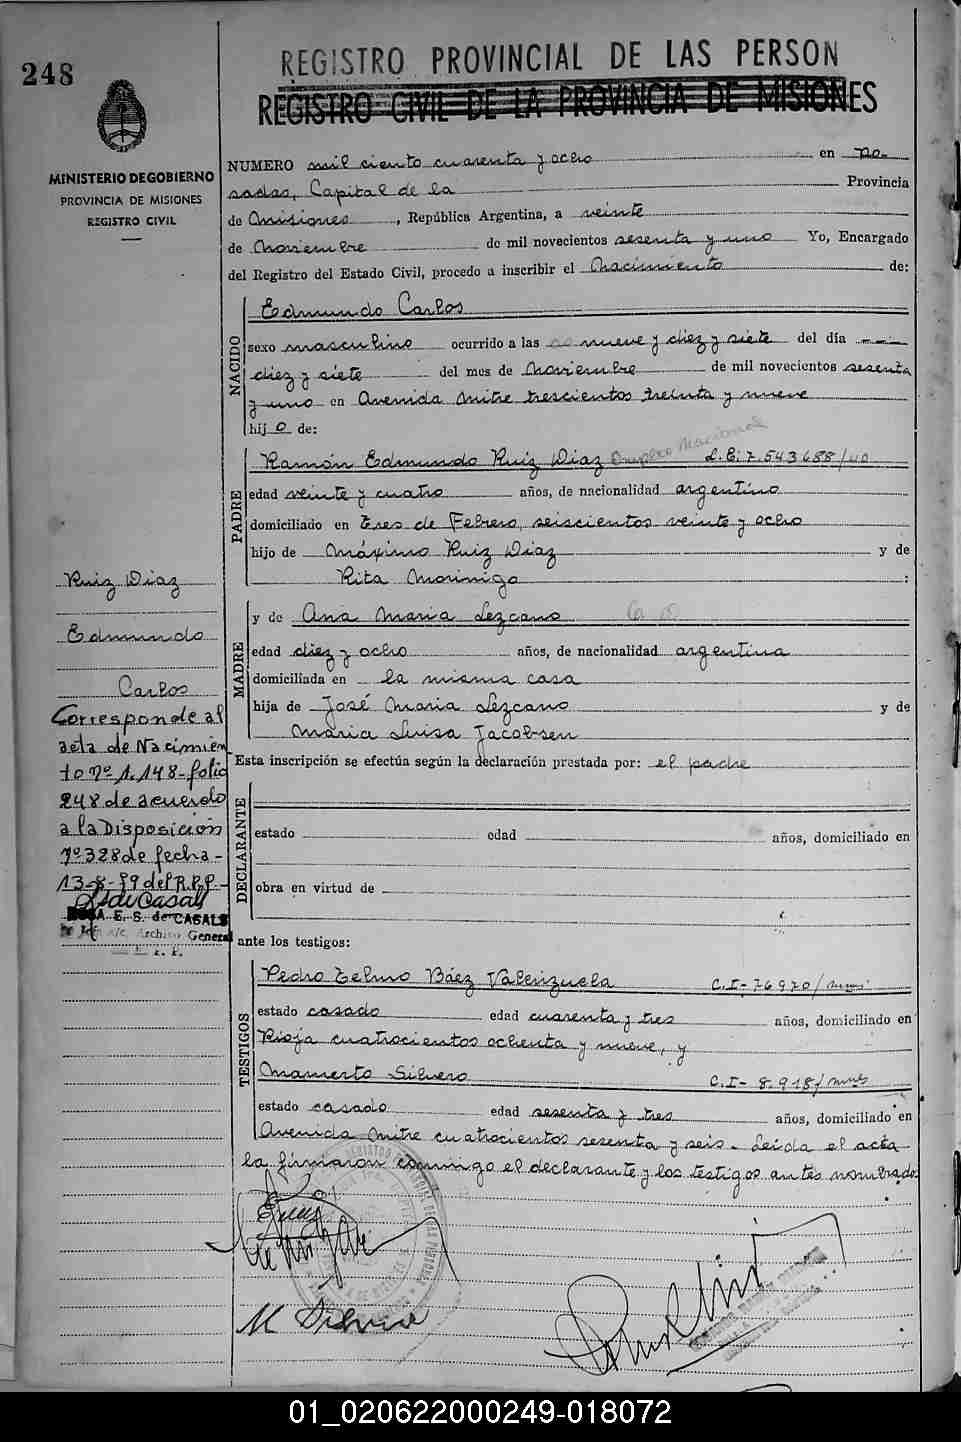 248
REGISTRO PROVINCIAL DE LAS PERSON
REGISTRO CIVIL DE LA PROVINCIA DE MISIONES
MINISTERIO DE GOBIERNO
PROVINCIA DE MISIONES
REGISTRO CIVIL
NUMERO mil ciento cuarenta y ocho en Po-
sadas, Capital de la Provincia
de Misiones, República Argentina, a veinte
de Noviembre de mil novecientos sesenta y uno Yo, Encargado
del Registro del Estado Civil, procedo a inscribir el Nacimiento de:
NACIDO
Edmundo Carlos
sexo masculino ocurrido a las nueve y diez y siete del día
diez y siete del mes de Noviembre de mil novecientos sesenta
y uno en Avenida Mitre trescientos treinta y nueve
hijo de:
PADRE
Ramón Edmundo Ruiz Diaz L.E: 7.543688/40
edad veinte y cuatro años, de nacionalidad argentino
domiciliado en Tres de Febrero, seiscientos veinte y ocho
hijo de Máximo Ruiz Diaz y de
Rita Morinigo :
MADRE
y de Ana Maria Lezcano
edad diez y ocho años, de nacionalidad argentina
domiciliada en la misma casa
hija de José Maria Lezcano y de
Maria Luisa Jacobsen
Esta inscripción se efectúa según la declaración prestada por: el padre
DECLARANTE
estado edad años, domiciliado en
obra en virtud de
ante los testigos:
TESTIGOS
Pedro Telmo Báez Valenzuela C.I- 76970/mnes
estado casado edad cuarenta y tres años, domiciliado en
Rioja cuatrocientos ochenta y nueve, y
Mamerto Silvero C.I- 8.918/mnes
estado casado edad sesenta y tres años, domiciliado en
Avenida Mitre cuatrocientos sesenta y seis - Leida el acta
la firmaron conmigo el declarante y los testigos antes nombrados.
M Silvero
Ruiz Diaz
Edmundo
Carlos
Corresponde al
acta de Nacimien
to Nº 1.148- folio
248 de acuerdo
a la Disposición
Nº 328 de fecha-
13-8-79 del R.P.P.-
ROSA E. S. de CASALS
Jefe a/c. Archivo General
01_020622000249-018072